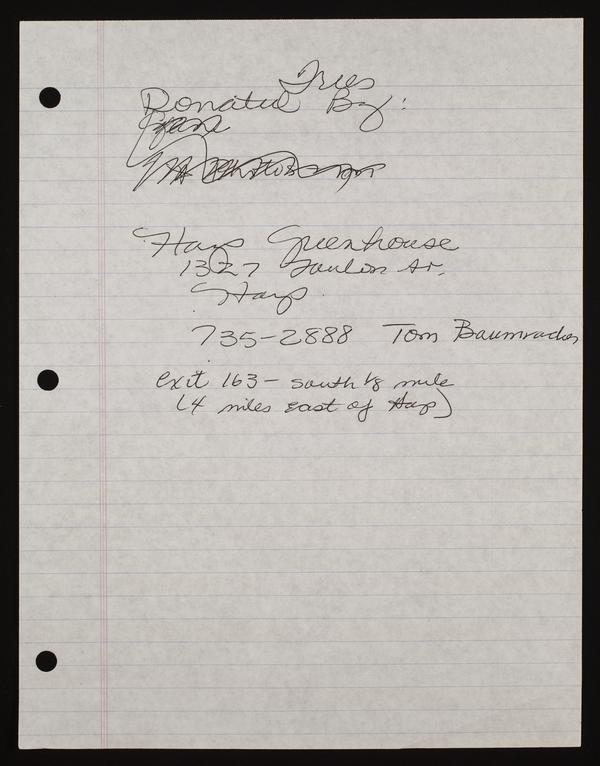 Trees
Donated By:
Hays Greenhouse
1327
Hays
735-2888 Tom
exit 163 - south 1/8 mile
(4 miles east of Hays)